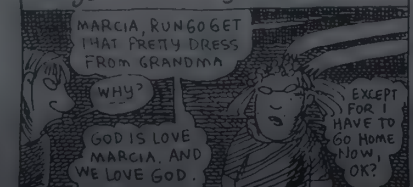 MARCIA, RUN GO GET
THAT PRETTY DRESS
FROM GRANDMA
WHY?
GOD IS LOVE
MARCIA. AND
WE LOVE GOD.
EXCEPT
FOR I
HAVE TO
GO HOME
NOW,
OK?